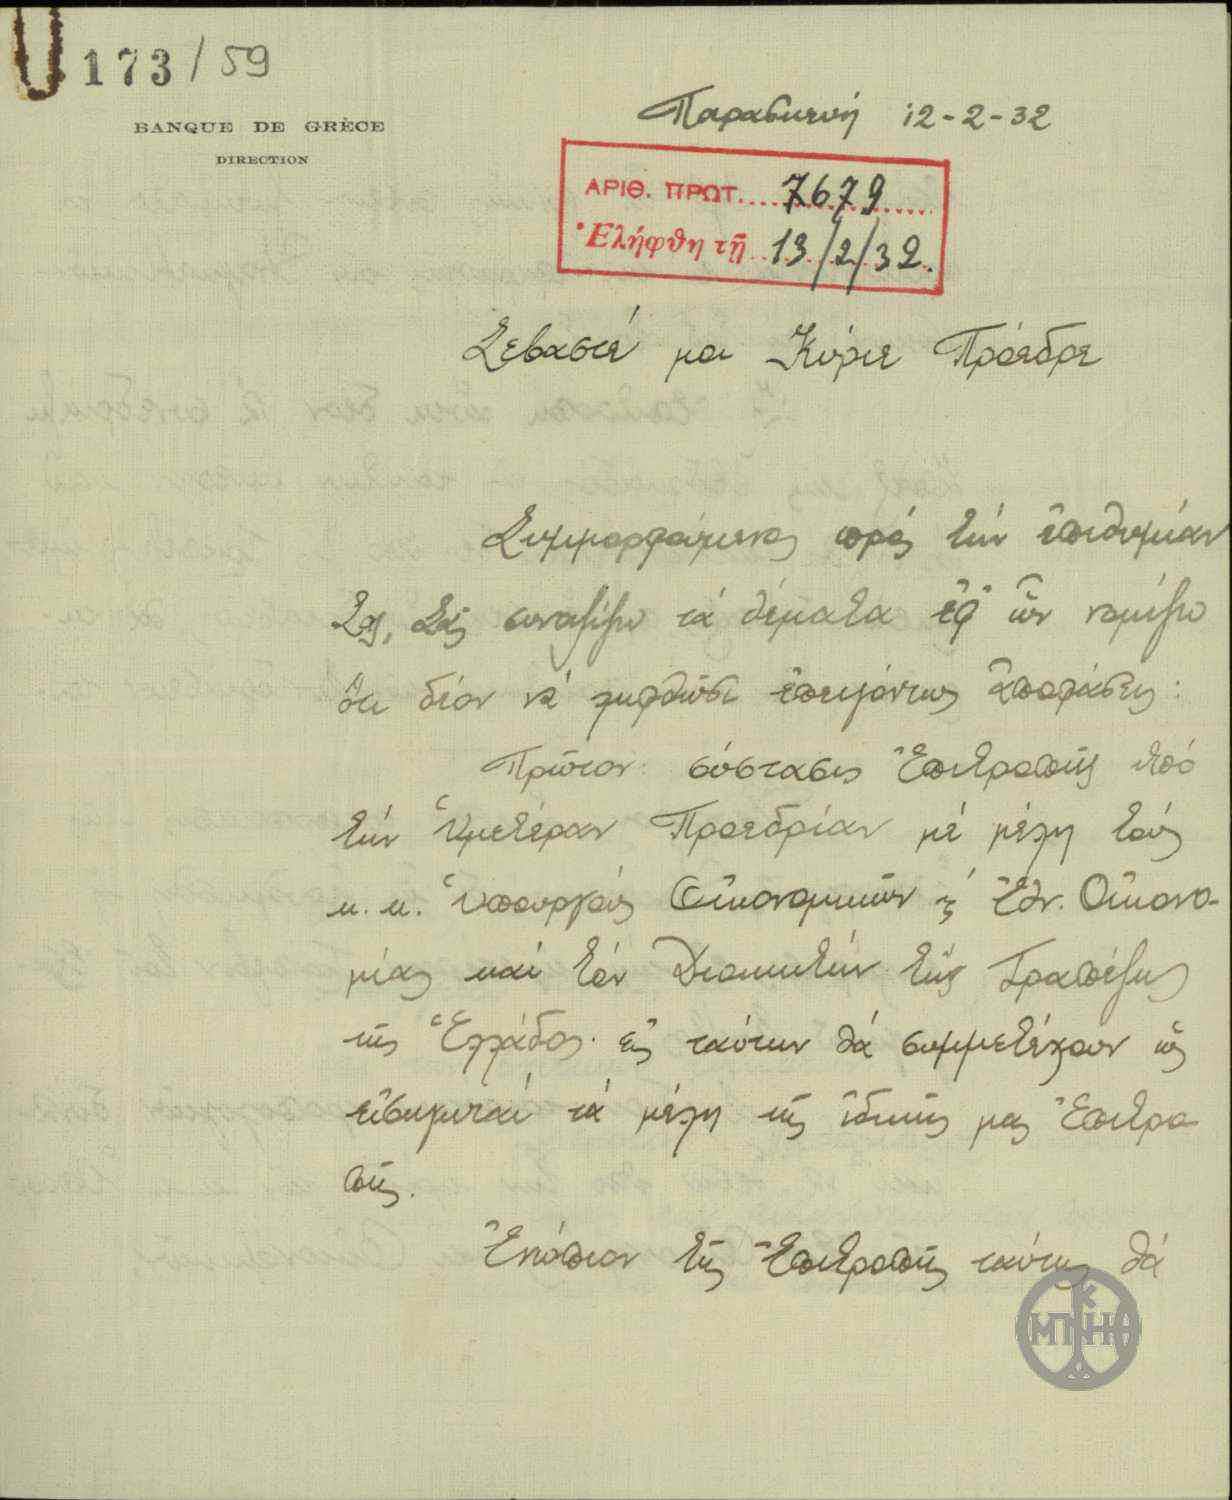 173/59
BANQUE DE GRÈCE
DIRECTION
Παρασκευή 12-2-32
ΑΡΙΘ. ΠΡΩΤ. 7679
Ἐλήφθη τῇ 13/2/32.
Σεβαστέ μοι Κύριε Πρόεδρε
Συμμορφούμενος πρός τήν ἐπιθυμίαν
Σας, Σᾶς συνοψίζω τά θέματα ἐφ' ὧν νομίζω
ὅτι δέον νά ληφθῶσι ἐπειγόντως ἀποφάσεις:
Πρῶτον: σύστασις Ἐπιτροπῆς ὑπό
τήν Ὑμετέραν Προεδρίαν μέ μέλη τούς
κ.κ. Ὑπουργούς Οἰκονομικῶν ϗ Ἐθν. Οἰκονο-
μίας καί τόν Διοικητήν τῆς Τραπέζης
τῆς Ἑλλάδος. εἰς ταύτην θά συμμετέχουν ὡς
εἰσηγηταί τά μέλη τῆς ἰδικῆς μας Ἐπιτρο-
πῆς.
Ἐνώπιον τῆς Ἐπιτροπῆς ταύτης θά
ΜΠ ΚΗ